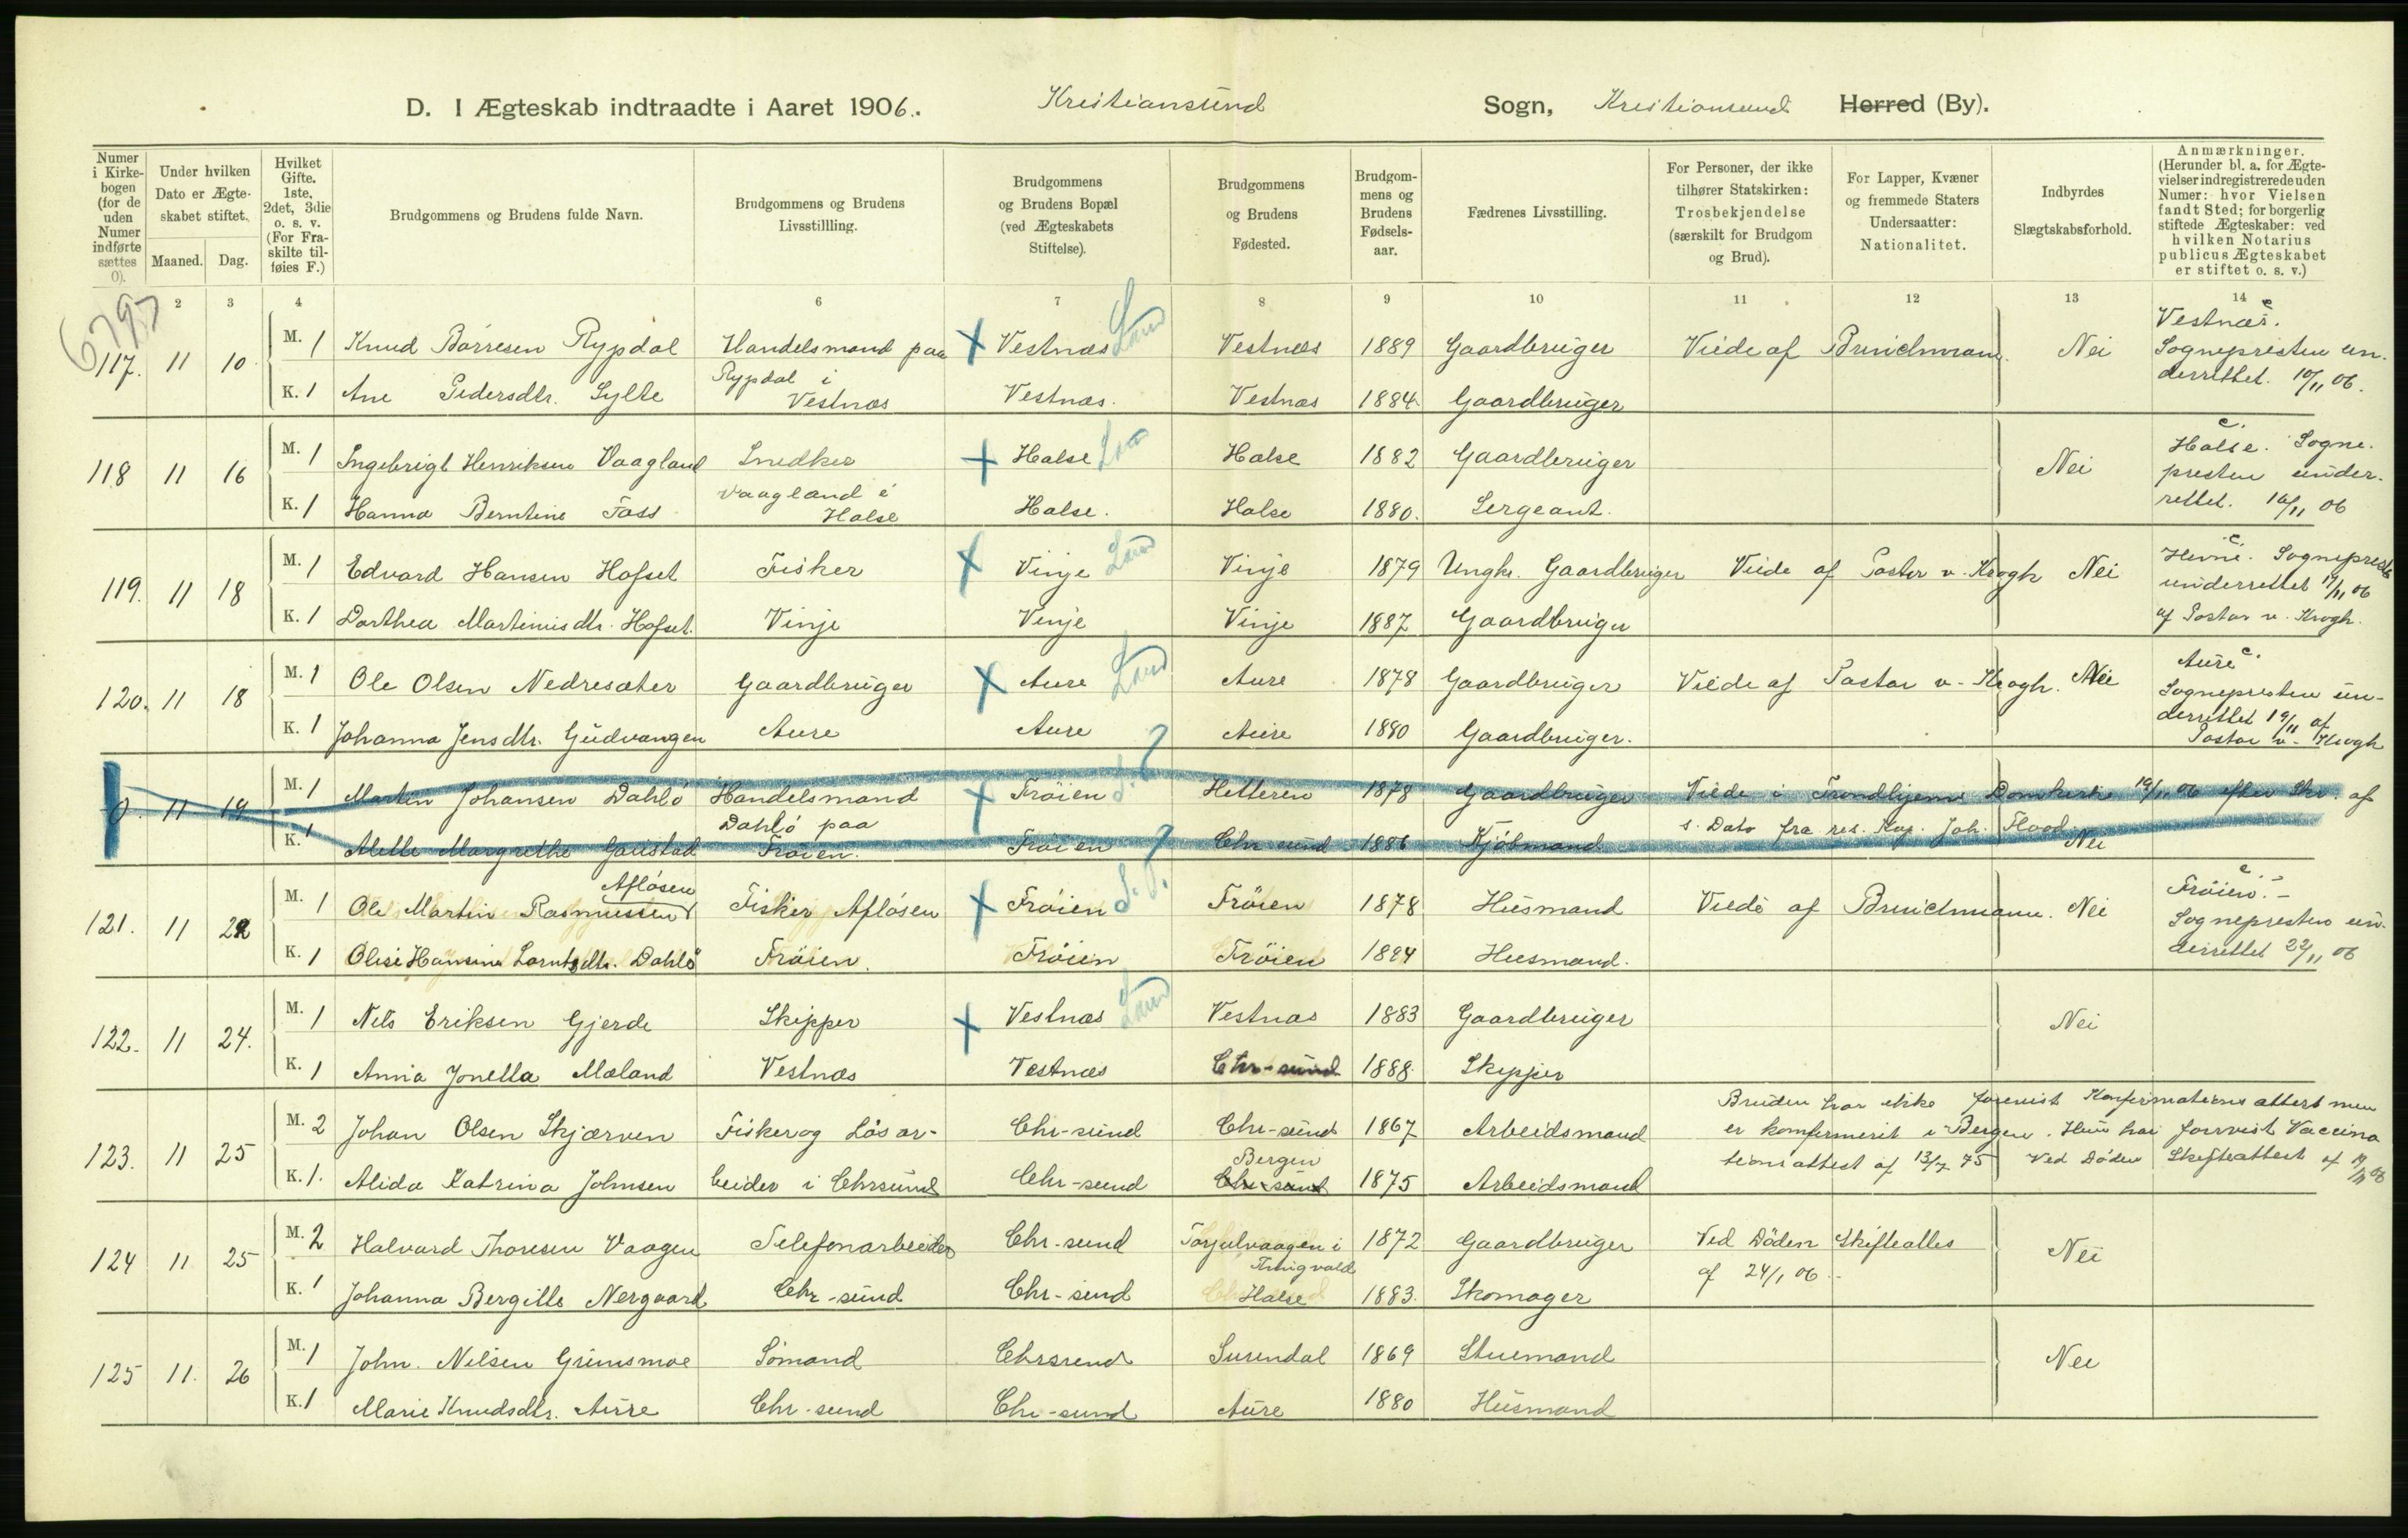 D. I Ægteskab indtraadte i Aaret 1906. Kristiansund Sogn, Kristiansund Herred (By).
Numer i Kirkebogen (for de uden Numer indførte sættes 0).
Under hvilken Dato er Ægteskabet stiftet.
Maaned. Dag.
Hvilket Gifte. 1ste, 2det, 3die o. s. v. (For Fraskilte tilføies F.)
Brudgommens og Brudens fulde Navn.
Brudgommens og Brudens Livsstillling.
Brudgommens og Brudens Bopæl (ved Ægteskabets Stiftelse).
Brudgommens og Brudens Fødested.
Brudgommens og Brudens Fødselsaar.
Fædrenes Livsstilling.
For Personer, der ikke tilhører Statskirken: Trosbekjendelse (særskilt for Brudgom og Brud).
For Lapper, Kvæner og fremmede Staters Undersaatter: Nationalitet.
Indbyrdes Slægtskabsforhold.
Anmærkninger. (Herunder bl. a. for Ægtevielser indregistrerede uden Numer: hvor Vielsen fandt Sted; for borgerlig stiftede Ægteskaber: ved hvilken Notarius publicus Ægteskabet er stiftet o. s. v.)
2 3 4 6 7 8 9 10 11 12 13 14
6797
117. 11 10 M. 1 Knud Børresen Rypdal Handelsmand paa Vestnæs Land Vestnæs 1889 Gaardbruger Viede af Bruichmann. Nei Vestnæs. Sognepresten underrettet. 10/11 06.
K. 1 Ane Pedersdtr. Sylte Rypdal i Vestnæs Vestnæs. Vestnæs 1884. Gaardbruger
118 11 16 M. 1 Ingebrigt Henriksen Vaagland Snedker Halse Land Halse 1882 Gaardbruger Nei Halse. Sognepresten underrettet. 16/11 06
K. 1 Hanna Berntine Foss Vaagland i Halse Halse. Halse 1880. Sergeant.
119. 11 18 M. 1 Edvard Hansen Hofset Fisker Vinje Land Vinje 1879 Ungkr. Gaardbruger Viede af Pastor v. Krogh Nei Hevne. Sogneprest underrettet 19/11 06 af Pastor v. Krogh.
K. 1 Dorthea Martinusdtr. Hofset. Vinje Vinje Vinje 1887 Gaardbruger
120. 11 18 M. 1 Ole Olsen Nedresæter Gaardbruger Aure Land Aure 1878 Gaardbruger Viede af Pastor v. Krogh. Nei Aure Sognepresten underrettet 19/11 af Pastor v. Krogh
K. 1 Johanna Jensdtr. Gudvangen Aure Aure Aure 1880 Gaardbruger.
0. 11 19 M. 1 Martin Johansen Dahlø Handelsmand Frøien S.T. Hitteren 1878 Gaardbruger Viede i Trondhjems Domkirke 19/11 06 efter Skr. af
K. 1 Alette Margrethe Gaustad Dahlø paa Frøien. Frøien Chr sund 1886 Kjøbmand s. Dato fra res. Kap. Joh. Flood. Nei
121. 11 22 M. 1 Ole Martin Rasmussen Afløsen Fisker Afløsen Frøien S.T. Frøien 1878 Husmand Viede af Bruichmann. Nei Frøien. Sognepresten underrettet 22/11 06
K. 1 Olise Hansine Larntsdtr. Dahlø Frøien. Frøien Frøien 1884 Husmand.
122. 11 24. M. 1 Nils Eriksen Gjerde Skipper Vestnæs Land Vestnæs 1883 Gaardbruger Nei
K. 1 Anna Jonella Mæland Vestnæs Vestnæs Chr-sund 1888. Skipper
123. 11 25 M. 2 Johan Olsen Skjærven Fisker og Løsar- Chr-sund Chr-sund 1867 Arbeidsmand Bruden har ikke forevist Konfirmationsattest men er konfirmerit i Bergen. Hun har forevist Vaccinationsattest af 13/7 75 Ved Døden Skifteattest af
K. 1. Alida Katrina Johnsen beider i Chrsund Chr-sund Bergen Chr-sund 1875 Arbeidsmand
124 11 25 M. 2 Halvard Thoresen Vaagen Telefonarbeider Chr-sund Torjulvaagen i Thingvold 1872 Gaardbruger Ved Døden Skifteattes af 24/1 06. Nei
K. 1 Johanna Bergitte Nergaard Chr-sund Chr-sund Halse 1883. Skomager
125 11. 26 M. 1 John. Nilsen Grimsmoe Sømand Chrsund Surendal 1869 Stuemand Nei
K. 1 Marie Knudsdtr. Aure Chr-sund Chr-sund Aure 1880 Husmand